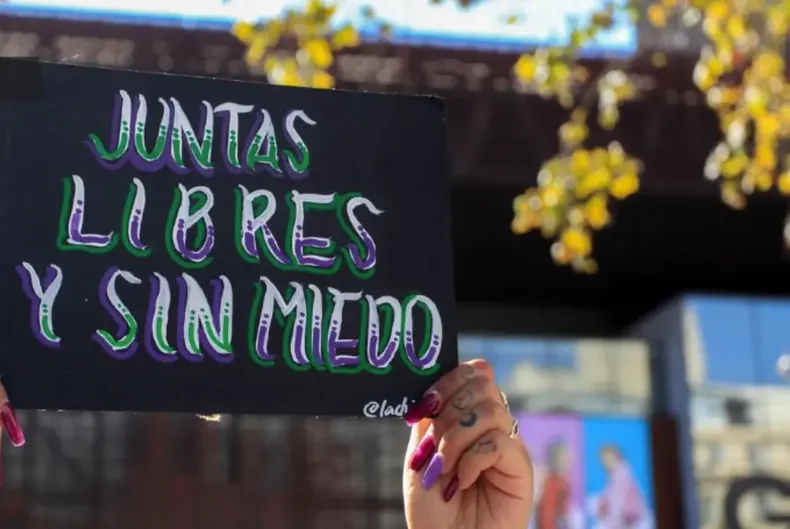 JUNTAS
LIBRES
Y SIN MIEDO